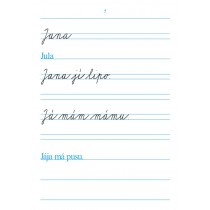 7
Jana
Jula
Jana jí lipo.
Já mám mámu.
Jája má pusu.